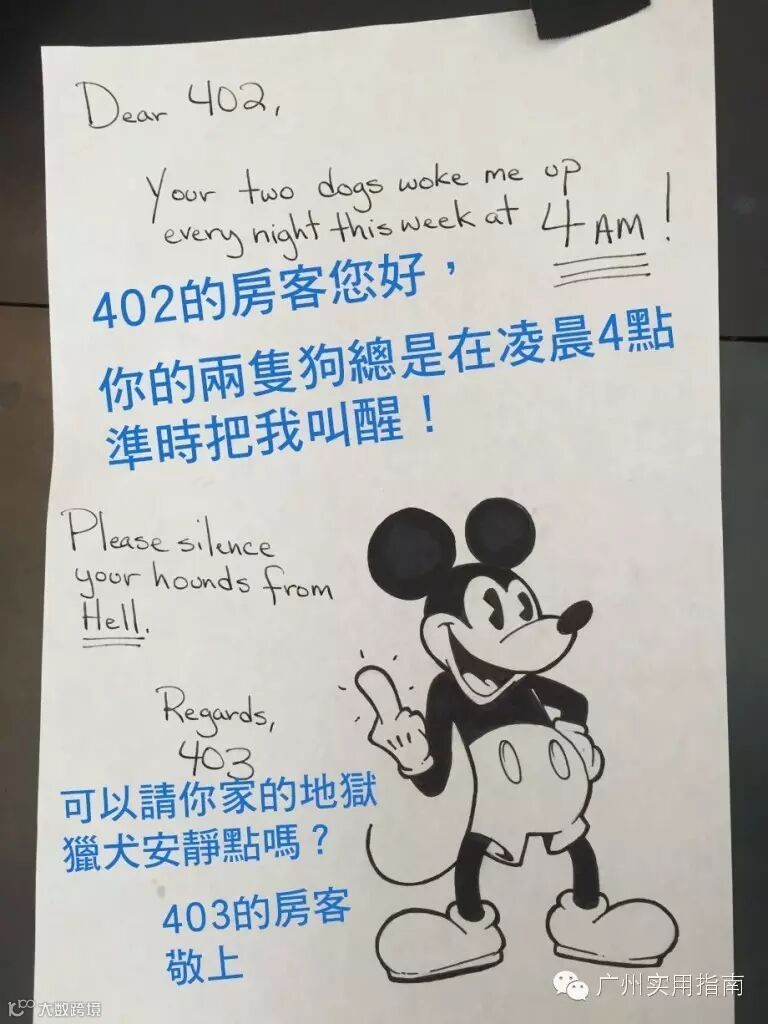 Dear 402,
Your two dogs woke me up
every night this week at 4 AM!
402的房客您好，
你的兩隻狗總是在凌晨4點
準時把我叫醒！
Please silence
your hounds from
Hell.
Regards,
403
可以請你家的地獄
獵犬安靜點嗎？
403的房客
敬上
广州实用指南
大数跨境